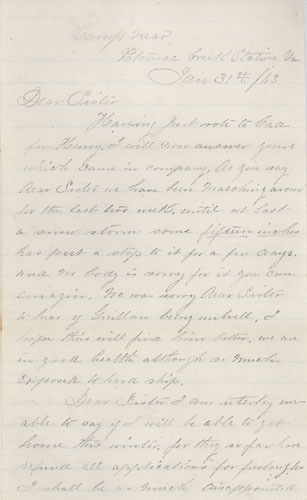 Camp Near
Potomac Creek Station Va
Jan 31st /63
Dear Sister
Having just wrote to
for Henry, I will now answer yours
which came in company. As you say
dear Sister we have been marching around
for the last two week. until at last
a snow storm some fifteen inches
has put a stop to it for a few days.
and no body is sorry for it you can
imagin. We was sorry dear Sister
to hear of being unwell, I
hope this will find him better. we are
in good health although so much
exposed to hard ship.
Dear Sister I am uterley un-
able to say if I will be able to get
home this winter, for they so far have
refused all applications for furloughs
I shall be as much disappointed